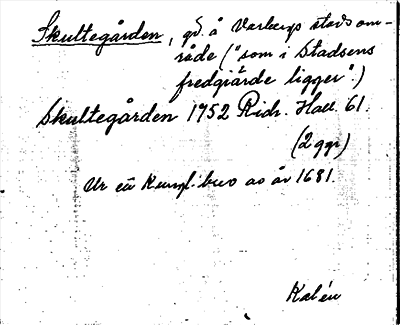 Skultegården, gd. å Varbergs stadsom-
råde ("som i Stadsens
fredgiärde ligger".)
Skultegården 1752 Rich. Hall. 61.
(2 ggr)
Ur ett Kungl. brev av år 1681.
Kalén